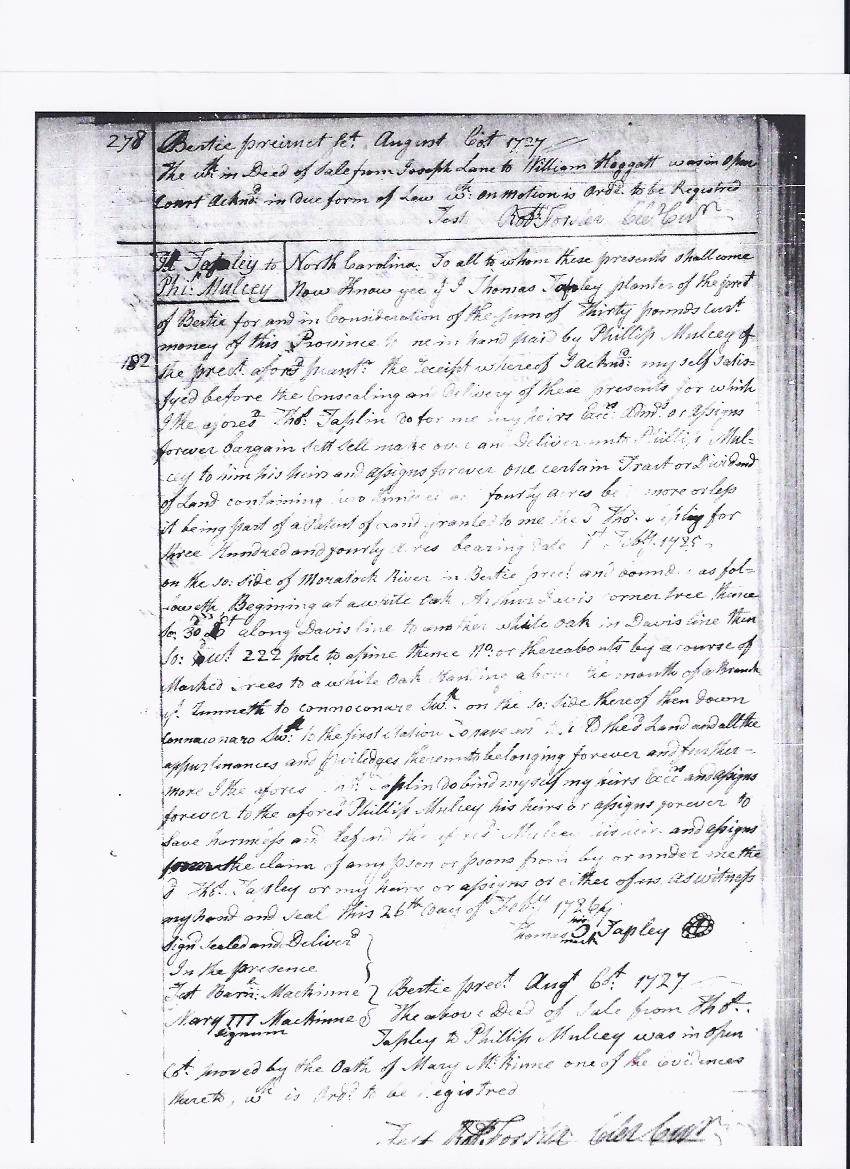 278
Bertie precinct Sct. August Cot. 1727
The wth.in Deed of Sale from Joseph Lane to William Hoggatt was in Open
Court Acknd. in due form of Law wch. on motion is Ordd. to be Registred
Test Robt. Forster Cler Cur
Tapley to
Phi: Mulcey
North Carolina. To all to whom these presents shall come
Now Know yee yt. I Thomas Tapley planter of the prect
of Bertie for and in Consideration of the sum of Thirty pounds Curt.
money of this Province to me in hand paid by Phillip Mulcey of
182
the prect. aforsd. the receipt whereof I acknd: my self satis-
fyed before the Ensealing an Delivery of these presents for which
I the afores'd Tho: Taplin do for me my heirs Exrs. Admrs. or assigns
forever bargain sett sell make over an Deliver unto Phillip Mul-
cey to him his heirs and assigns forever one certain Tract or Dividend
of Land containing two hundred fourty acres be more or less
it being part of a Patent of Land granted to me the sd Tho. Tapley for
three hundred and fourty Acres bearing date 1st Febry. 1725
on the so: side of Moratock River in Bertie prect and bound as fol-
loweth Begining at a white Oak Arthur Davis corner tree thence
So. 30 along Davis line to another white oak in Davis line then
So: wt. 222 pole to a pine thence No. or thereabouts by a course of
Marked Trees to a white Oak standing above the mouth of a Branch
yt. runneth to connoconare Swp. on the so: side thereof then down
connaconaro Swp. to the first station To have and to the sd Land and all the
appurtenances and priviledges thereunto belonging forever and further-
more I the afores Tho. Taplin do bind myself my heirs Exrs and assigns
forever to the afores'd Phillip Mulcey his heirs or assigns forever to
save harmless and defend the Mulcey his heirs and assigns
from the claim of any pson or psons from by or under me the
sd Tho. Tapley or my heirs or assigns or either of us. As witness
my hand and seal this 26th Day of Febry 1726/7
Thomas his mark Tapley
Sign Sealed and Deliverd
In the presence
Test Barn: Mackinne
Mary III Mackinne
signum
Bertie prect. Augt Cot. 1727
The above Deed of Sale from Tho.
Tapley to Phillip Mulcey was in open
Cot. proved by the Oath of Mary McKinne one of the Evidences
thereto, wch is Ordd. to be Registred
Test Robt. Forster Cler Cur